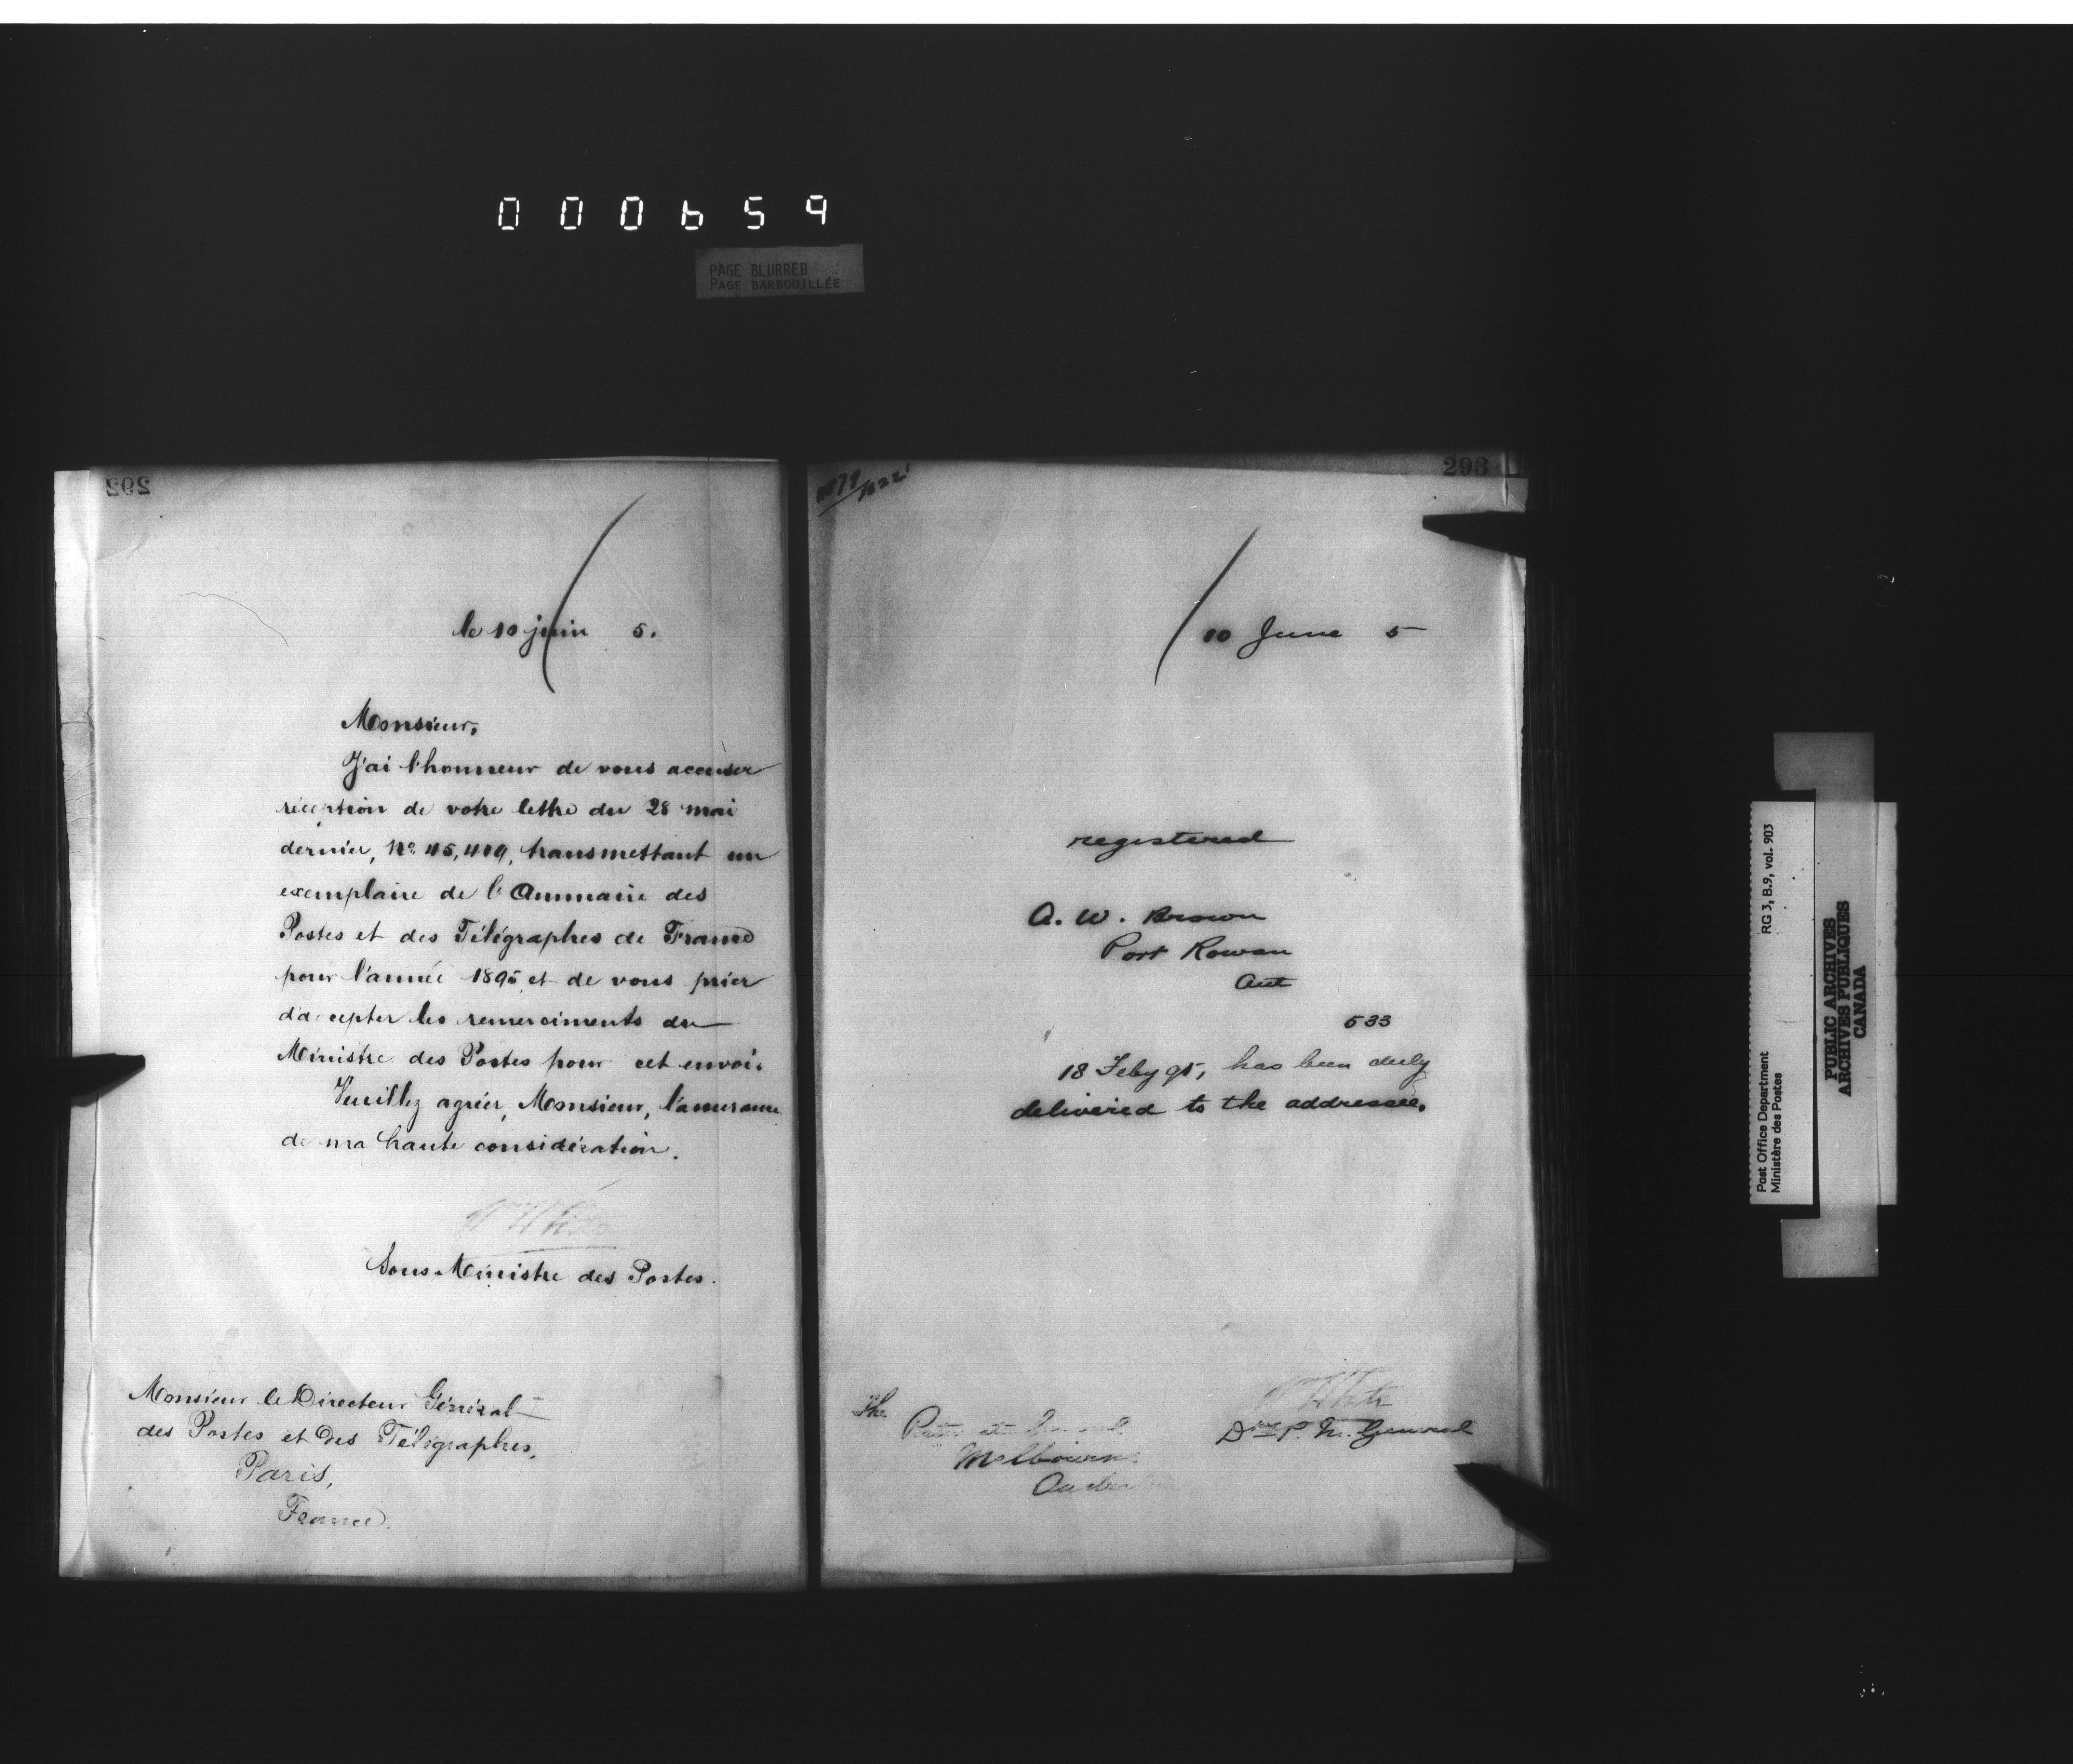 000659
PAGE BLURRED
PAGE BARBOUILLÉE
292
le 10 juin 5.
Monsieur,
J'ai l'honneur de vous accuser
réception de votre lettre du 28 mai
dernier, No. 45,409, transmettant un
exemplaire de l'Annuaire des
Postes et des Télégraphes de France
pour l'année 1895, et de vous prier
d'accepter les remerciments du
Ministre des Postes pour cet envoi.
Veuillez agréer, Monsieur, l'assurance
de ma haute considération.
Wm White
Sous-Ministre des Postes.
Monsieur le Directeur Général
des Postes et des Télégraphes,
Paris,
France.
293
10 June 5
registered
A. W. Brown
Port Rowan
Ont
533
18 Feby 95, has been duly
delivered to the addressee.
Wm White
Dy P. M. General
The
Melbourne
Post Office Department RG 3, B.9, vol. 903
Ministère des Postes
PUBLIC ARCHIVES
ARCHIVES PUBLIQUES
CANADA